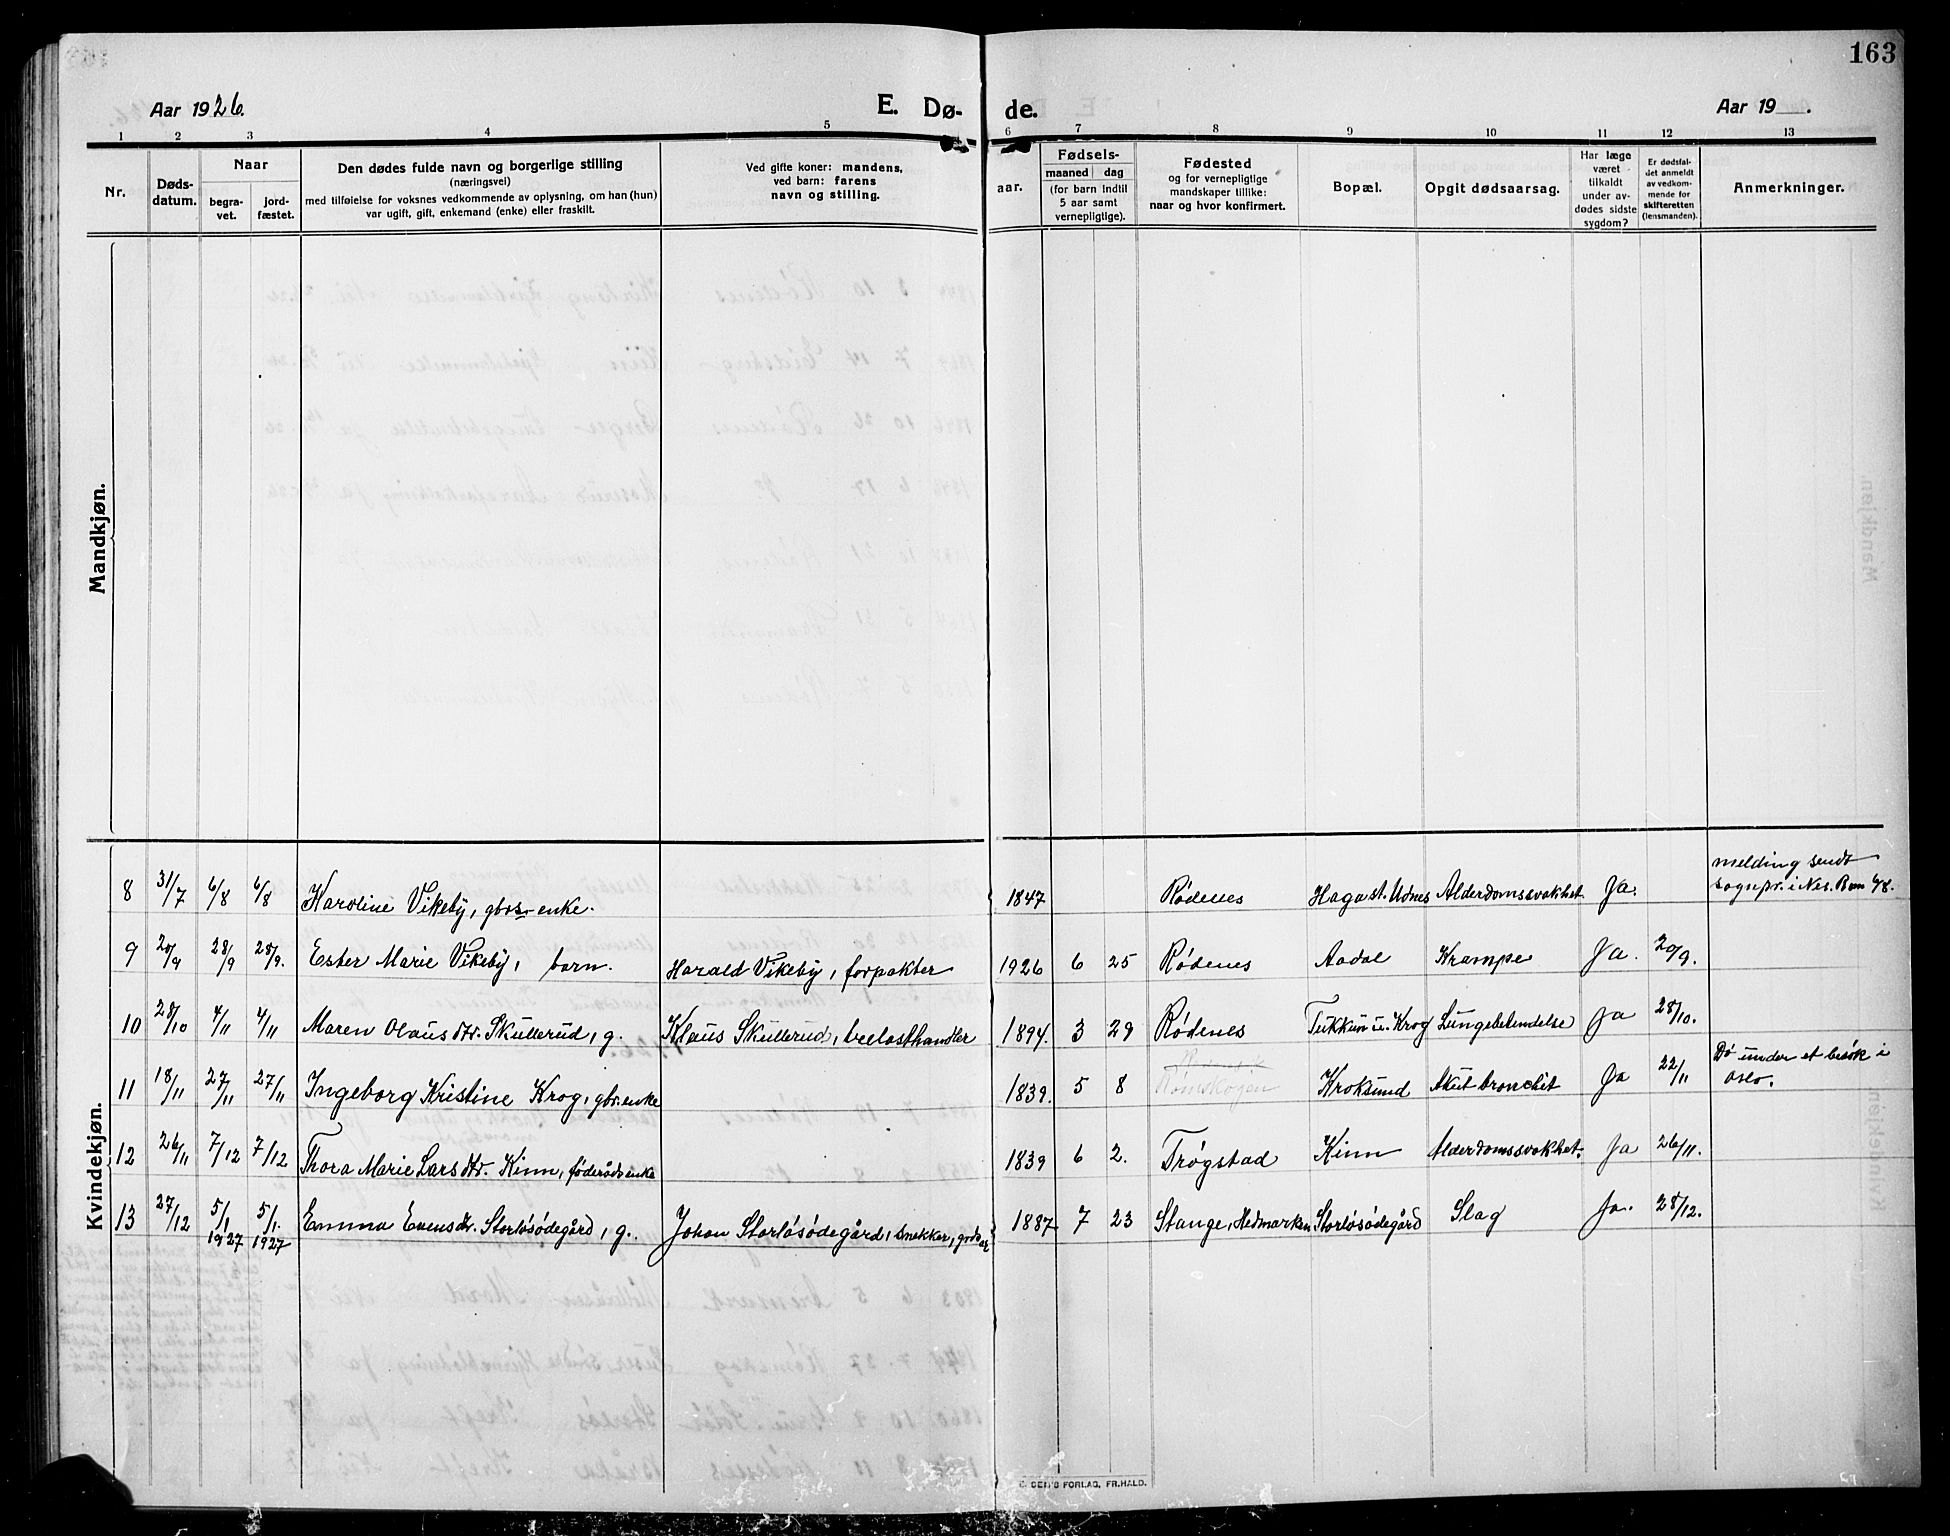 163
Aar 1926.
E. Dø- de.
Aar 19 .
1 2 3 4 5 6 7 8 9 10 11 12 13
Nr.
Døds-
datum.
Naar
begra-
vet.
jord-
fæstet.
Den dødes fulde navn og borgerlige stilling
(næringsvei)
med tilføielse for voksnes vedkommende av oplysning, om han (hun)
var ugift, gift, enkemand (enke) eller fraskilt.
Ved gifte koner: mandens,
ved barn: farens
navn og stilling.
aar.
Fødsels-
maaned dag
(for barn indtil
5 aar samt
vernepligtige).
Fødested
og for vernepligtige
mandskaper tillike:
naar og hvor konfirmert.
Bopæl.
Opgit dødsaarsag.
Har læge
været
tilkaldt
under av-
dødes sidste
sygdom?
Er dødsfal-
det anmeldt
av vedkom-
mende for
skifteretten
(lensmanden).
Anmerkninger.
Mandkjøn.
Kvindekjøn.
8 31/7 6/8 6/8 Karoline Vikeby, gbrs enke. 1847 Rødenes Haga st. Udnes Alderdomssvakhet Ja. melding sendt
sognpr. i Nes. Rom 4/8.
9 20/9 28/9 28/9. Ester Marie Vikeby, barn. Harald Vikeby, forpakter 1926 6 25 Rødenes Aadal Krampe Ja. 20/9.
10 28/10 4/11 4/11 Maren Olausdtr. Skullerud, g. Klaus Skullerud, trelasthandler 1894. 3 29 Rødenes Tukkun u. Krog Lungebetendelse Ja 28/10.
11 18/11 27/11 27/11 Ingeborg Kristine Krog, gbr. enke 1839. 5 8 Rømskogen Kroksund Akut bronchit Ja 22/11 Dø under et besøk i
Oslo.
12 26/11 7/12 7/12 Thora Marie Larsdtr. Kinn, føderådsenke 1839 6 2. Trøgstad Kinn Alderdomssvakhet. Ja 26/11.
13 27/12 5/1 1927 5/1. 1927 Emma Evensdtr. Storløsødegård, g. Johan Storløsødegård, snekker, 1887 7 23 Stange, Hedmarken Storløsødegård Slag Ja. 28/12.
SEN'S FORLAG, FR.HALD.